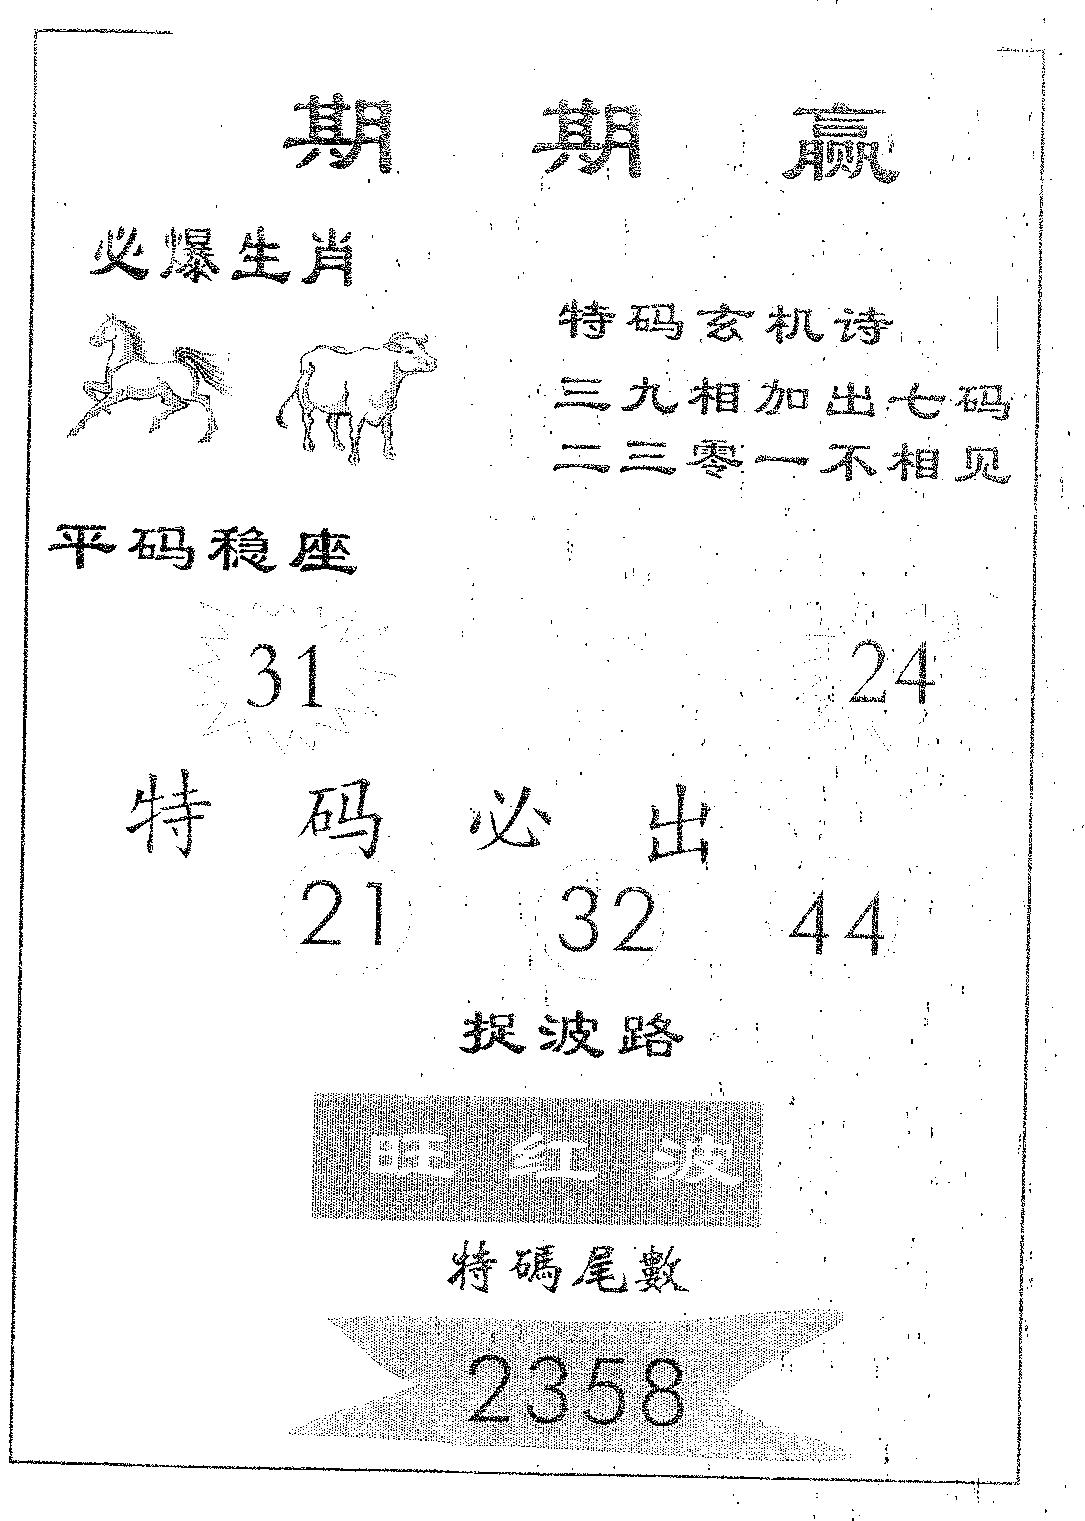 期期赢
必爆生肖
特码玄机诗
三九相加出七码
二三零一不相见
平码稳座
31
24
特码必出
21 32 44
捉波路
旺红波
特碼尾數
2358